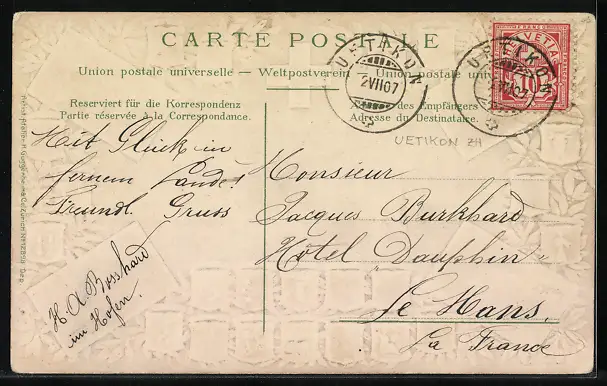 CARTE POSTALE
Union postale universelle — Weltpostverein — Union postale univ
Reserviert für die Korrespondenz
Partie réservée à la Correspondance.
des Empfängers
Adresse du Destinataire.
UETIKON
2VII07
UETIKON
2VII07
FRANCO
HELVETIA
UETIKON ZH
Hait Glück in
fernem Lande!
Freundl. Gruss
H. A. Bosshard
im Hofen.
Monsieur
Jacques Burkhard
Hôtel Dauphin
Le Mans,
La France